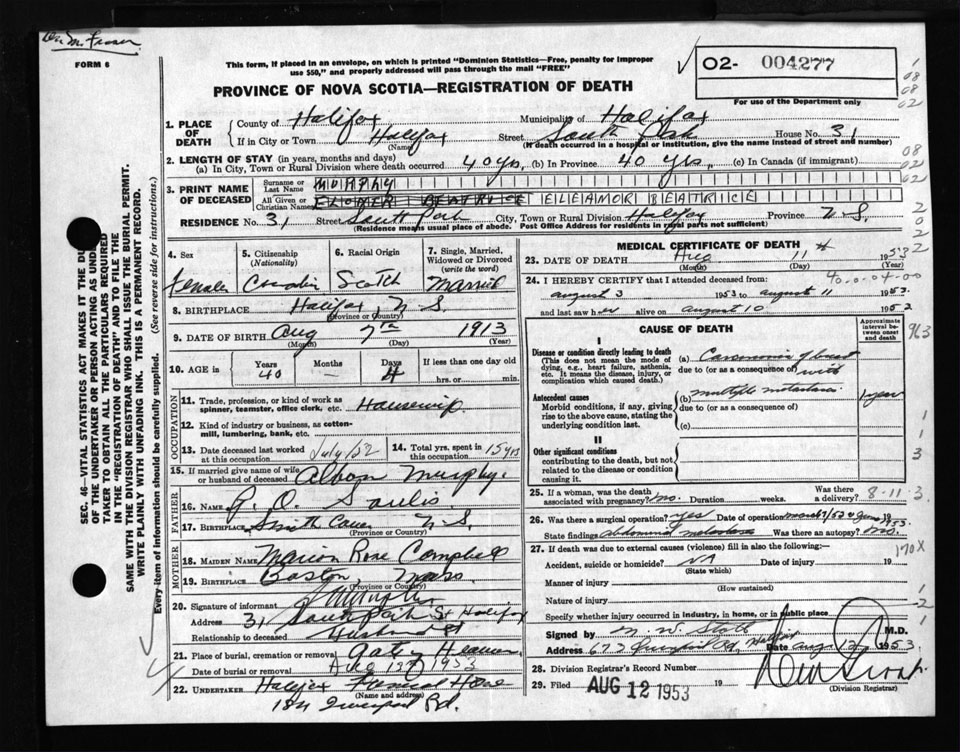 FORM 6
This form, if placed in an envelope, on which is printed "Dominion Statistics—Free, penalty for improper
use $50," and properly addressed will pass through the mail "FREE"
PROVINCE OF NOVA SCOTIA—REGISTRATION OF DEATH
O2- 004277
For use of the Department only
1. PLACE OF DEATH County of Halifax Municipality of Halifax
If in City or Town Halifax (Name) Street South Park House No. 31
(If death occurred in a hospital or institution, give the name instead of street and number)
2. LENGTH OF STAY (in years, months and days)
(a) In City, Town or Rural Division where death occurred 40 yrs, (b) In Province 40 yrs, (c) In Canada (if immigrant)
3. PRINT NAME OF DECEASED Surname or Last Name MURPHY
All Given or Christian Names ELEANOR BEATRICE
RESIDENCE No. 31 Street South Park City, Town or Rural Division Halifax Province N.S.
(Residence means usual place of abode. Post Office Address for residents in rural parts not sufficient)
4. Sex Female
5. Citizenship (Nationality) Canadian
6. Racial Origin Scotch
7. Single, Married, Widowed or Divorced (write the word) Married
8. BIRTHPLACE Halifax N.S.
(Province or Country)
9. DATE OF BIRTH Aug 7th 1913
(Month) (Day) (Year)
10. AGE in Years 40 Months - Days 4 If less than one day old
hrs. or min.
OCCUPATION
11. Trade, profession, or kind of work as spinner, teamster, office clerk, etc. Housewife
12. Kind of industry or business, as cotten-mill, lumbering, bank, etc.
13. Date deceased last worked at this occupation July/52 14. Total yrs. spent in this occupation 15 yrs
15. If married give name of wife or husband of deceased Alban Murphy
FATHER
16. NAME R. O.
17. BIRTHPLACE N.S.
(Province or Country)
MOTHER
18. MAIDEN NAME Marion Rose Campbell
19. BIRTHPLACE Boston, Mass
(Province or Country)
20. Signature of informant
Address 31 South Park St Halifax
Relationship to deceased Husband
21. Place of burial, cremation or removal Gate of Heaven
Date of burial or removal Aug 1953
22. UNDERTAKER Halifax Funeral Home
(Name and address)
Rd.
MEDICAL CERTIFICATE OF DEATH
23. DATE OF DEATH Aug 11 1953
(Month) (Day) (Year)
24. I HEREBY CERTIFY that I attended deceased from:
august 3 1953 to august 11 1953
and last saw her alive on august 10 1953
CAUSE OF DEATH
Approximate interval between onset and death
I
Disease or condition directly leading to death (a) Carcinoma of breast
(This does not mean the mode of dying, e.g., heart failure, asthenia, etc. It means the disease, injury, or complication which caused death.)
due to (or as a consequence of) with
Antecedent causes (b) multiple metastases 1 year
Morbid conditions, if any, giving rise to the above cause, stating the underlying condition last.
due to (or as a consequence of)
(c)
II
Other significant conditions
contributing to the death, but not related to the disease or condition causing it.
25. If a woman, was the death associated with pregnancy? no. Duration weeks. Was there a delivery? 8-11-3
26. Was there a surgical operation? yes Date of operation 1953
State findings abdominal metastases Was there an autopsy? no.
27. If death was due to external causes (violence) fill in also the following:
Accident, suicide or homicide? NA Date of injury 19
(State which)
Manner of injury
(How sustained)
Nature of injury
Specify whether injury occurred in industry, in home, or in public place
Signed by M.D.
Address Rd, Halifax Date Aug 12 1953
28. Division Registrar's Record Number
29. Filed AUG 12 1953 19
(Division Registrar)
SEC. 46—VITAL STATISTICS ACT MAKES IT THE DU
OF THE UNDERTAKER OR PERSON ACTING AS UNDE
TAKER TO OBTAIN ALL THE PARTICULARS REQUIRED
IN THE "REGISTRATION OF DEATH" AND TO FILE THE
SAME WITH THE DIVISION REGISTRAR WHO SHALL ISSUE THE BURIAL PERMIT.
WRITE PLAINLY WITH UNFADING INK. THIS IS A PERMANENT RECORD.
Every item of information should be carefully supplied. (See reverse side for instructions.)